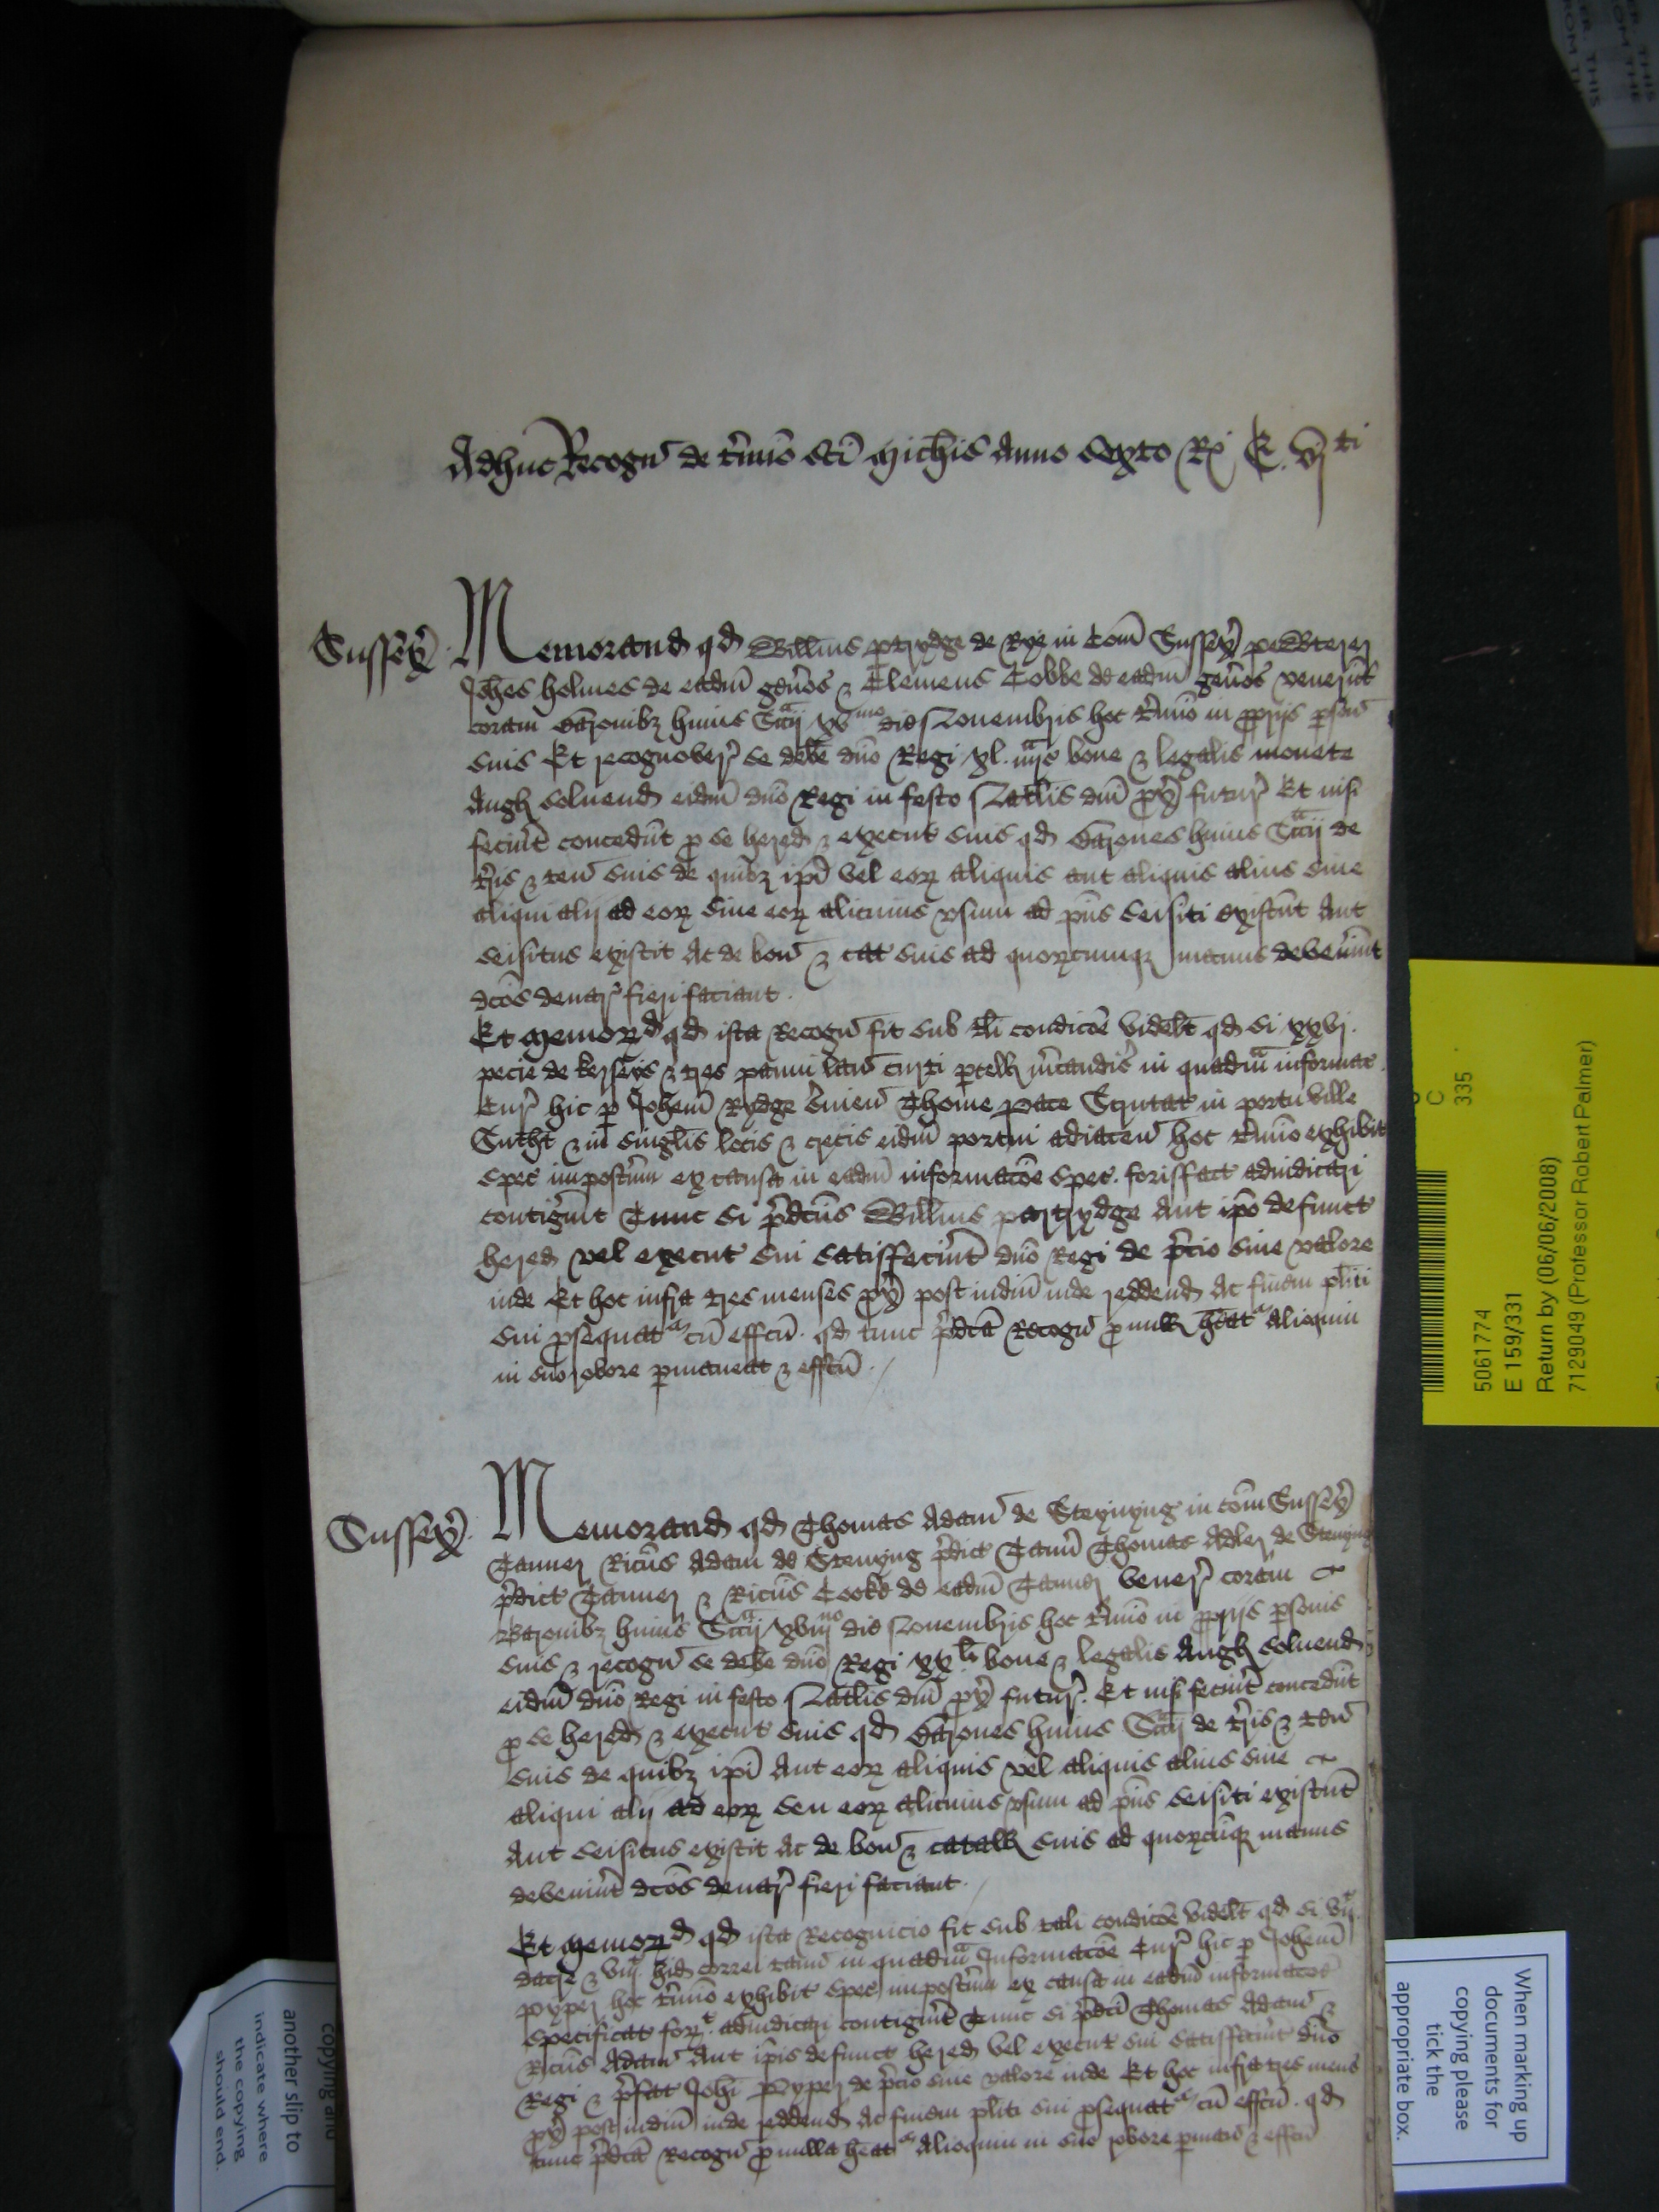 Adhuc Recogn de t'mio sci Michis Anno sexto Rx E. vjti
Sussex'
Memorand qd Willms ptrydge de Rye in Com Sussex' pewterer
Johes holmes de eadm gen'os & Clemens Cobbe de eadm gen'os venerut
coram Baronibz huius Sccij xvmo die Novembris hoc t'mio in pprijs pson
suis Et recognover' se debe dno Regi xl. bone & legalis monete
Angl solvend eidm dno Regi in festo Natlis dni px' futur' Et nisi
fec'int concedut p se hered & execut suis qd Barones huius Sccij de
t'ris & ten suis de quibz ipi vel eor aliquis aut aliquis alius sive
aliqui alij ad eor sive eor alicuius usum ad pns seisiti existut Aut
seisitus existit Ac de bon & cat suis ad quorcumqz manus deven'int
dcos denar' fieri faciant.
Et Memord qd ista Recogn fit sub tli condicoe videlt qd si xxvj.
pecie de kerseys & tres panni lan curti pcell m'candis in quadm informac
Cur' hic p Johem Rydge s'vien Thome Pace Scrutat in portu ville
Sutht & in singlis locis & crecis eidm portui adiacen hoc t'mio exhibit
spec impost'um ex causa in eadm informacoe spec. forisfact adiudicari
contig'int Tunc si p'dcus Willms partrydge Aut ipo defunct
hered vel execut sui satisfec'int dno Regi de p'cio sive valore
inde Et hoc infra tres menses px' post iudm inde reddend Ac finem pliti
sui psequat cu effcu. qd tunc p'dca Recogn p null heat Alioquin
in suo robore pmaneat & effcu.
Sussex'
Memorand qd Thomas Adam de Steynyng in com Sussex'
Tanner Ricus Adam de Stenyng p'dict Tann' Thomas Adler de Stenyng
p'dict Tanner & Ricus Cooke de eadm Tanner vener' coram
Baronibz huius Sccij xviijno die Novembris hoc t'mio in pprijs psonis
suis & recogn se debe dno Regi xxli bone & legalis Angl solvend
eidm dno Regi in festo Natlis dni px' futur'. Et nisi fec'int concedut
p se hered & execut suis qd Barones huius Sccij de t'ris & ten
suis de quibz ipi Aut eor aliquis vel aliquis alius sive
aliqui alij ad eor seu eor alicuius usum ad pns seisiti existut
Aut seisitus existit Ac de bon & catall suis ad quorcuqz manus
deven'int dcos denar' fieri faciant.
Et Memord qd ista Recognicio fit sub tali condicoe videlt qd si vij
dacre & viij hid correi tann in quadm Informacoe Cur' hic p Johem
pyper hoc t'mio exhibit spec impost'um ex causa in eadm informacoe
specificat forf. adiudicari contig'int Tunc si p'dci Thomas Adam &
Ricus Adam Aut ipis defunct hered vel execut sui satisfac'int dno
Regi & p'fat Johi Pyper de p'cio sive valore inde Et hoc infra tres mens
px' post iudm inde reddend Ac finem pliti sui psequat cu effcu. qd
tunc p'dca Recogn p nulla heat Alioquin in suo robore pman & effcu
5061774
E 159/331
Return by (06/06/2008)
7129049 (Professor Robert Palmer)
C
335
When marking up
documents for
copying please
tick the
appropriate box.
copying and
another slip to
indicate where
the copying
should end.